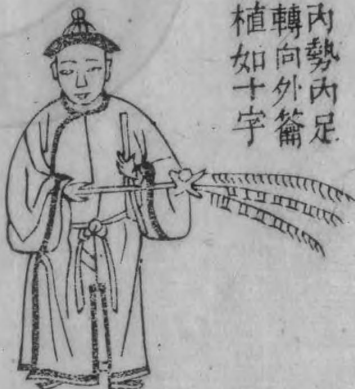 內勢內足
轉向外籥
植如十字